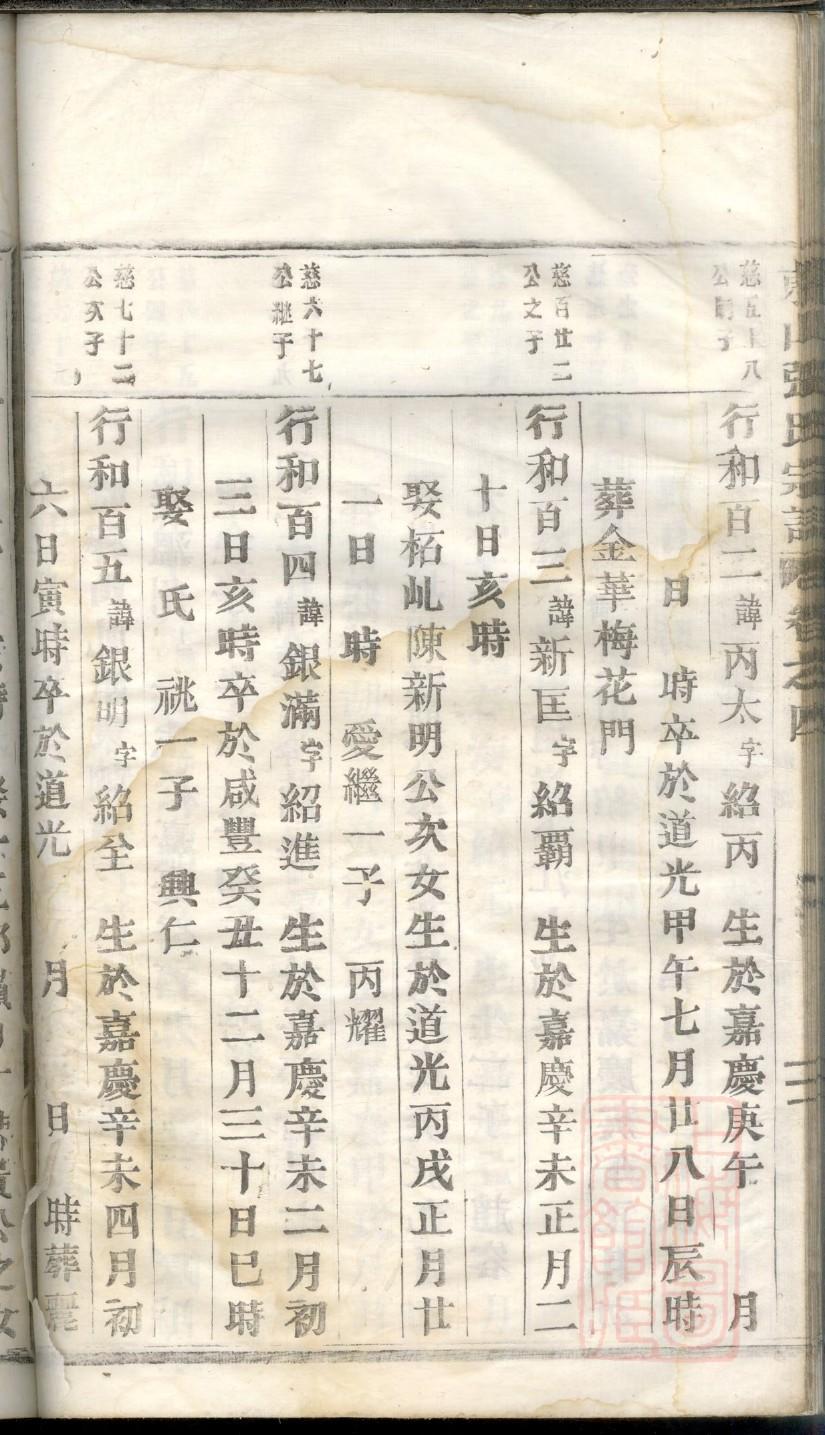 張氏宗譜
卷之四
慈五十八
公 子
行和百二諱丙太字紹丙 生於嘉慶庚午 月
日 時卒於道光甲午七月廿八日辰時
葬金華梅花門
慈百廿二
公之子
行和百三諱新匡字紹霸 生於嘉慶辛未正月二
十日亥時
娶柘乢陳新明公次女生於道光丙戌正月廿
一日 時 愛繼一子 丙耀
慈六十七
公繼子
行和百四諱銀滿字紹進 生於嘉慶辛未二月初
三日亥時卒於咸豐癸丑十二月三十日巳時
娶 氏 祧一子 興仁
慈七十二
公次子
行和百五諱銀明字紹全 生於嘉慶辛未四月初
六日寅時卒於道光 月 日 時葬麗